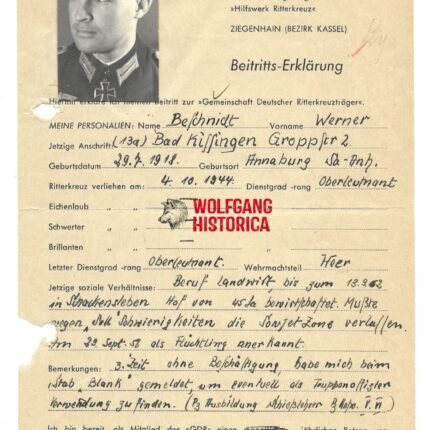 »Hilfswerk Ritterkreuz«
ZIEGENHAIN (BEZIRK KASSEL)
Beitritts-Erklärung
Hiermit erkläre ich meinen Beitritt zur »Gemeinschaft Deutscher Ritterkreuzträger«.
MEINE PERSONALIEN: Name Beschnidt Vorname Werner
Jetzige Anschrift (13a) Bad Kissingen Groppstr 2.
Geburtsdatum 29.7.1918. Geburtsort Annaburg Sa-Anh.
Ritterkreuz verliehen am: 4. 10. 1944. Dienstgrad -rang Oberleutnant
Eichenlaub " "
Schwerter " "
Brillanten " "
WOLFGANG
HISTORICA
Letzter Dienstgrad -rang Oberleutnant. Wehrmachtsteil Heer
Jetzige soziale Verhältnisse: Beruf Landwirt, bis zum
in Schackensleben Hof von 45 ha bewirtschaftet. Mußte
wegen "Soll" Schwierigkeiten die Sowjet-Zone verlassen.
Am 29. Sept. als Flüchtling anerkannt.
Bemerkungen: z. Zeit ohne Beschäftigung, habe mich beim
"Stab Blank" gemeldet, um eventuell als Truppenoffizier
Verwendung zu finden. (Pz Ausbildung
Ich bin bereits als Mitglied der »GDR« einen jährlichen Betrag von